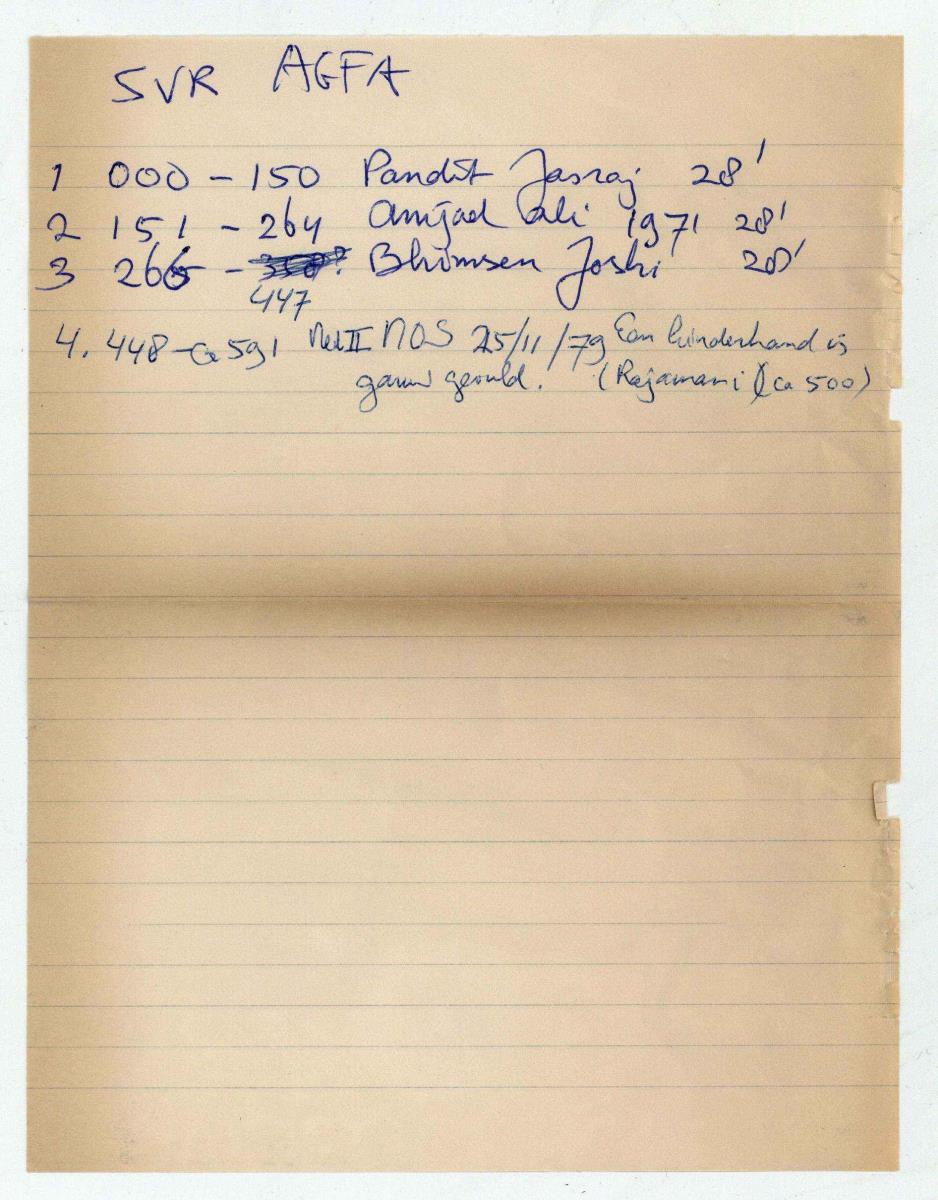 SVR AGFA
1 000 - 150 Pandit Jasraj 28'
2 151 - 264 Amjad Ali 1971 28'
3 265 - 350? Bhimsen Joshi 28'
447
4. 448 - ca 591 Ned II NOS 25/11/79 Een kinderhand is
gauw gevuld. (Rajamani (ca 500)